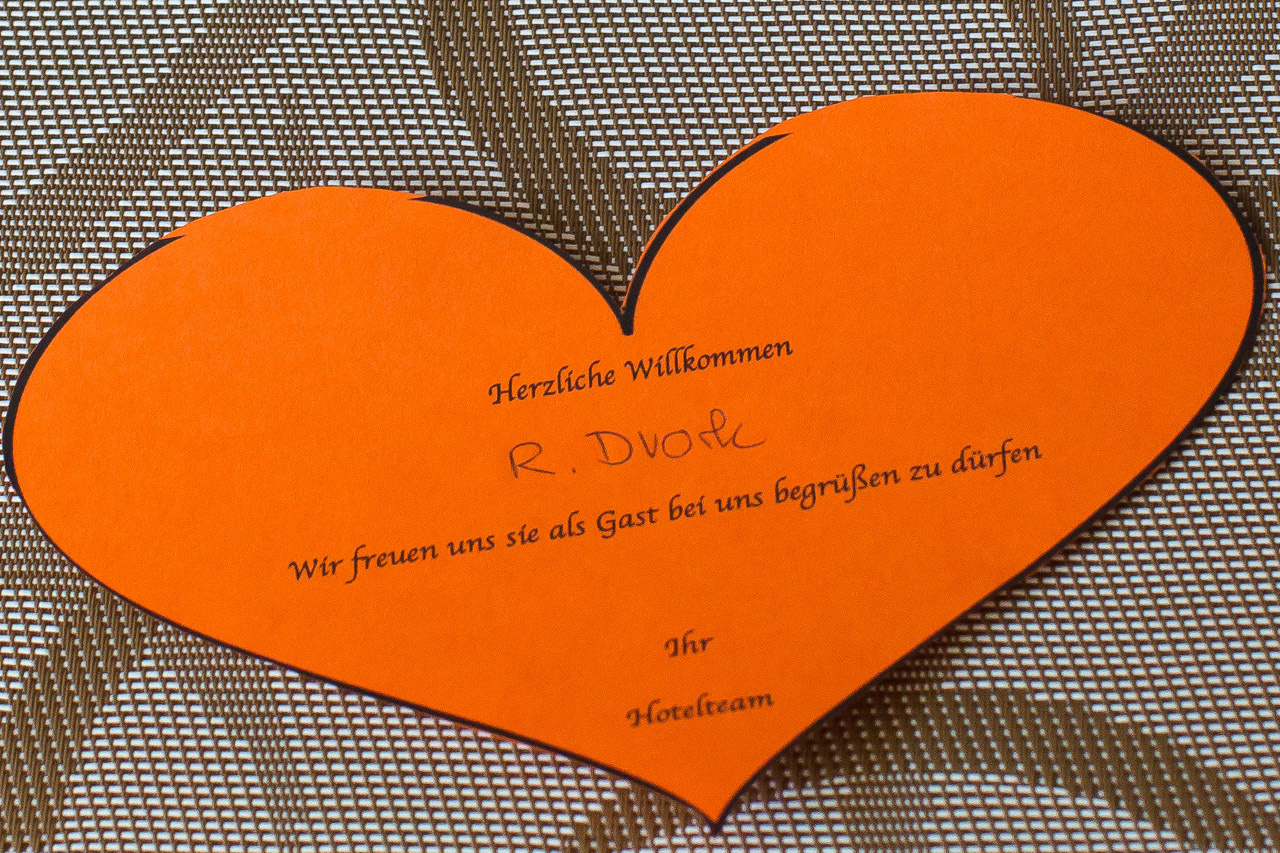 Herzliche Willkommen
R. Dvork
Wir freuen uns sie als Gast bei uns begrüßen zu dürfen
Ihr
Hotelteam